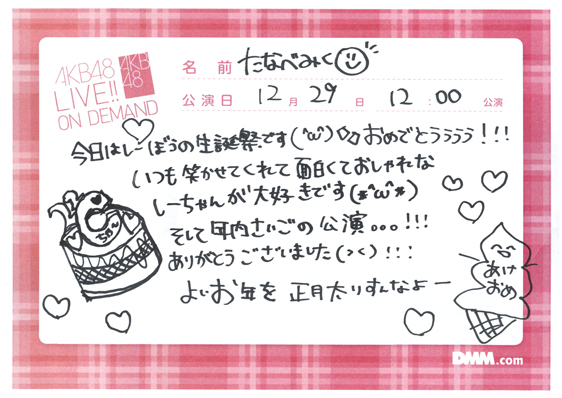 AKB48
LIVE!!
ON DEMAND
AKB
48
名前 たなべみく
公演日 12月29日 12:00 公演
今日はしーぼうの生誕祭です(^ω^)おめでとうぅぅぅ!!!
いつも笑かせてくれて面白くておしゃれな
しーちゃんが大好きです(*^ω^*)
そして年内さいごの公演。。。!!!
ありがとうございました(>く)!!!
よいお年を 正月太りすんなよー
ちゃん
あけ
おめ
DMM.com